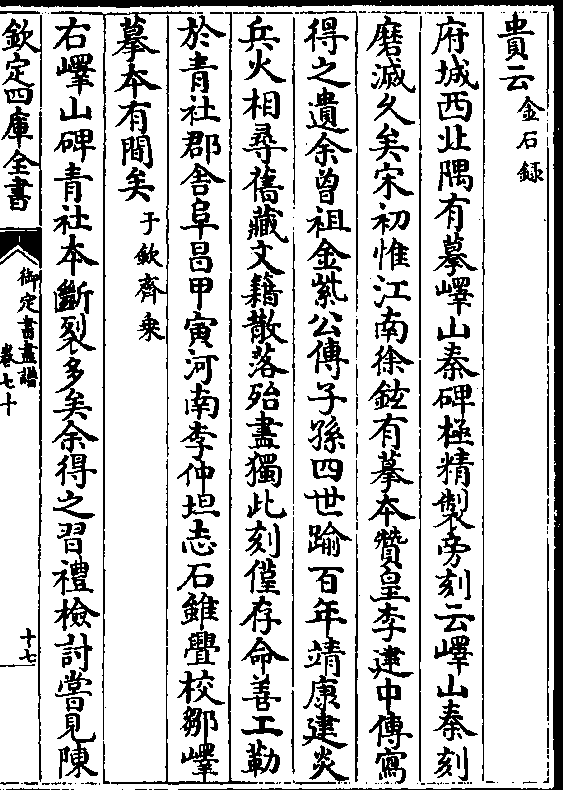 貴云金石録
府城西北隅有摹嶧山秦碑極精製旁刻云嶧山秦刻
磨滅久矣宋初惟江南徐鉉有摹本贊皇李建中傳寫
得之遺余曾祖金紫公傳子孫四世踰百年靖康建炎
兵火相尋舊藏文籍散落殆盡獨此刻僅存命善工勒
於青社郡舍阜昌甲寅河南李仲坦志石雖舋校鄒嶧
摹本有間矣于欽齊乘
右嶧山碑青社本斷裂多矣余得之習禮檢討嘗見陳
欽定四庫全書
御定書畫譜
卷七十
十七